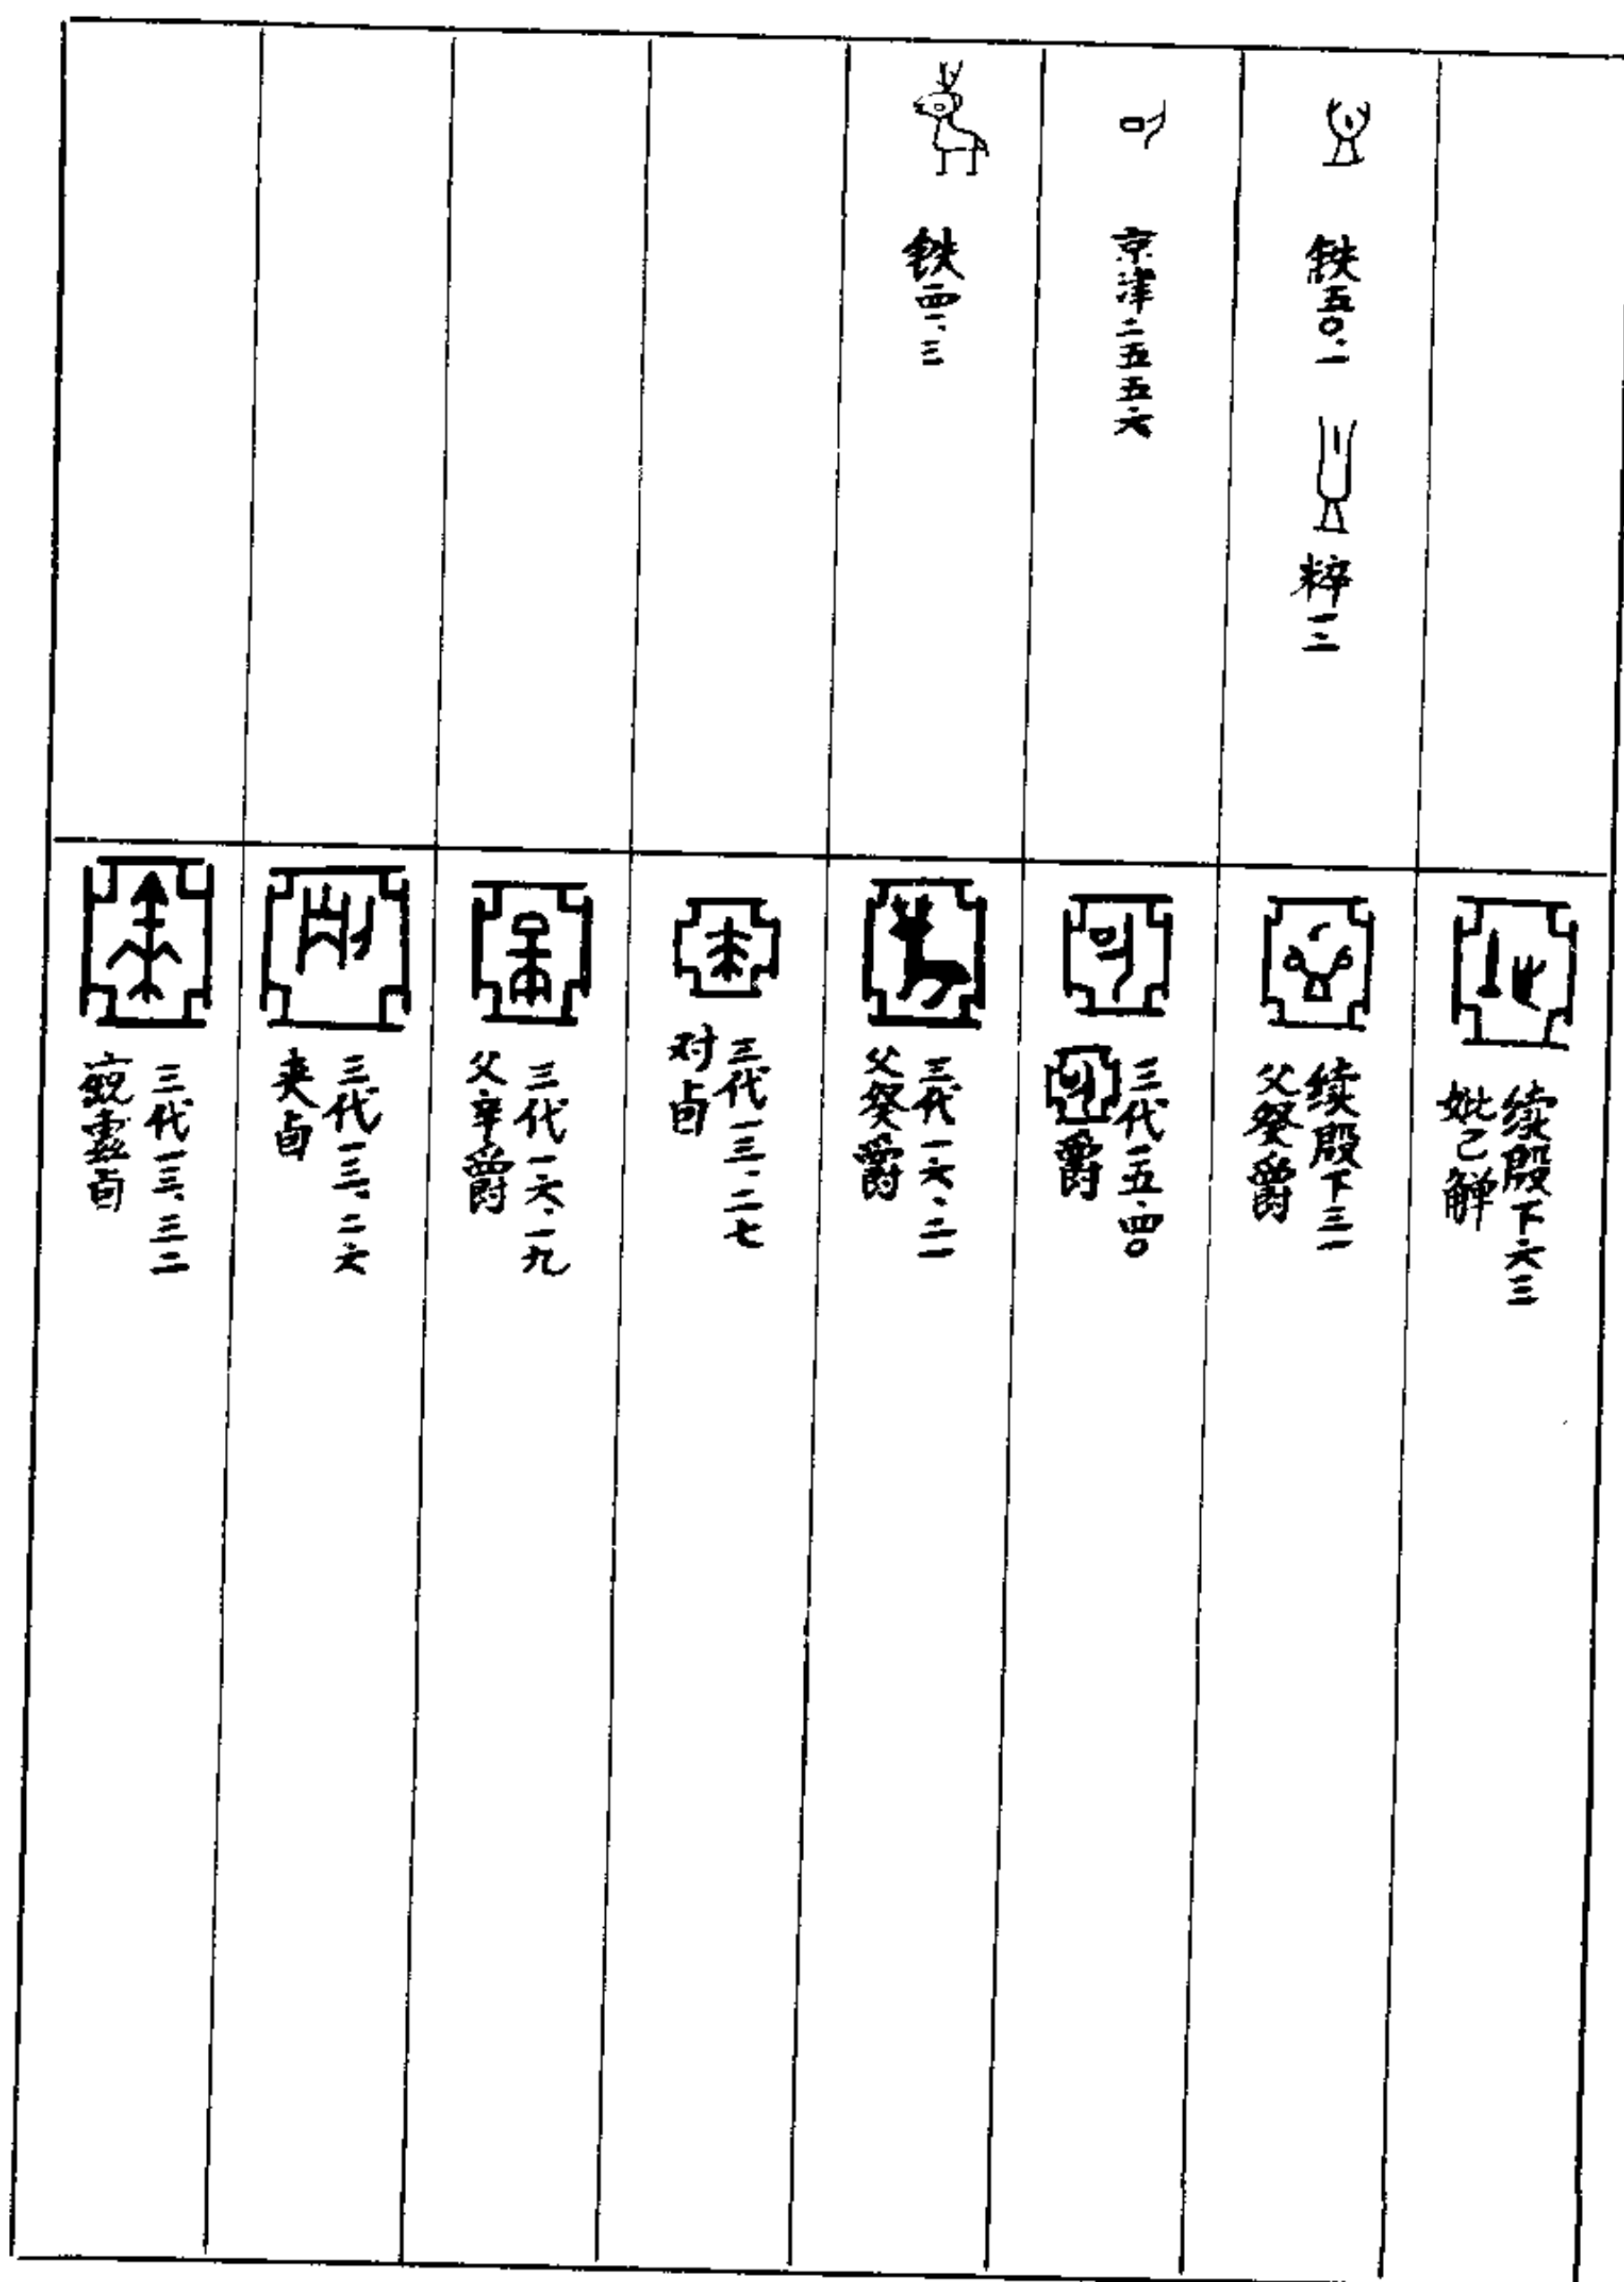 铁五〇·一 粹二三
京津二五五六
铁四二·三
续殷下六三
妣己觯
续殷下三一
父癸爵
三代一五·四〇
爵
三代一六·三一
父癸爵
三代一三·二七
对卣
三代一六·一九
父辛爵
三代一三·二六
卣
三代一三·三二
卣